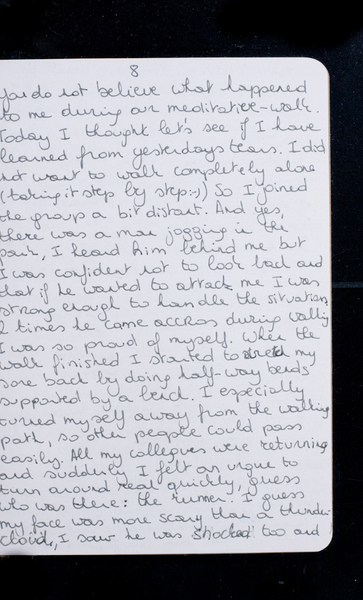 8
You do not believe what happened
to me during our meditative-walk.
Today I thought let's see if I have
learned from yesterdays tears. I did
not want to walk completely alone
(taking it step by step:-)) So I joined
the group a bit distant. And yes,
there was a man jogging in the
park, I heard him behind me but
I was confident not to look back and
that if he wanted to attack me I was
strong enough to handle the situation,
2 times he came accross during walking
I was so proud of myself. When the
walk finished I started to my
sore back by doing half-way bends
supported by a . I especially
turned myself away from the walking
path, so other people could pass
easily. All my collegues were returning
and suddenly I felt an urgue to
turn around real quickly, guess
who was there: the runner. I guess
my face was more scary than a thunder
cloud, I saw he was shocked too and